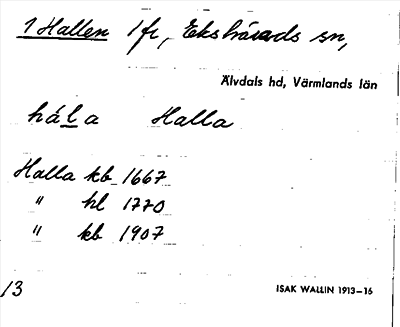 1 Hallen 1/2, Ekshärads sn,
Älvdals hd, Värmlands län
hála Halla
Halla kb 1667
" hl 1770
" kb 1907
13 ISAK WALLIN 1913–16